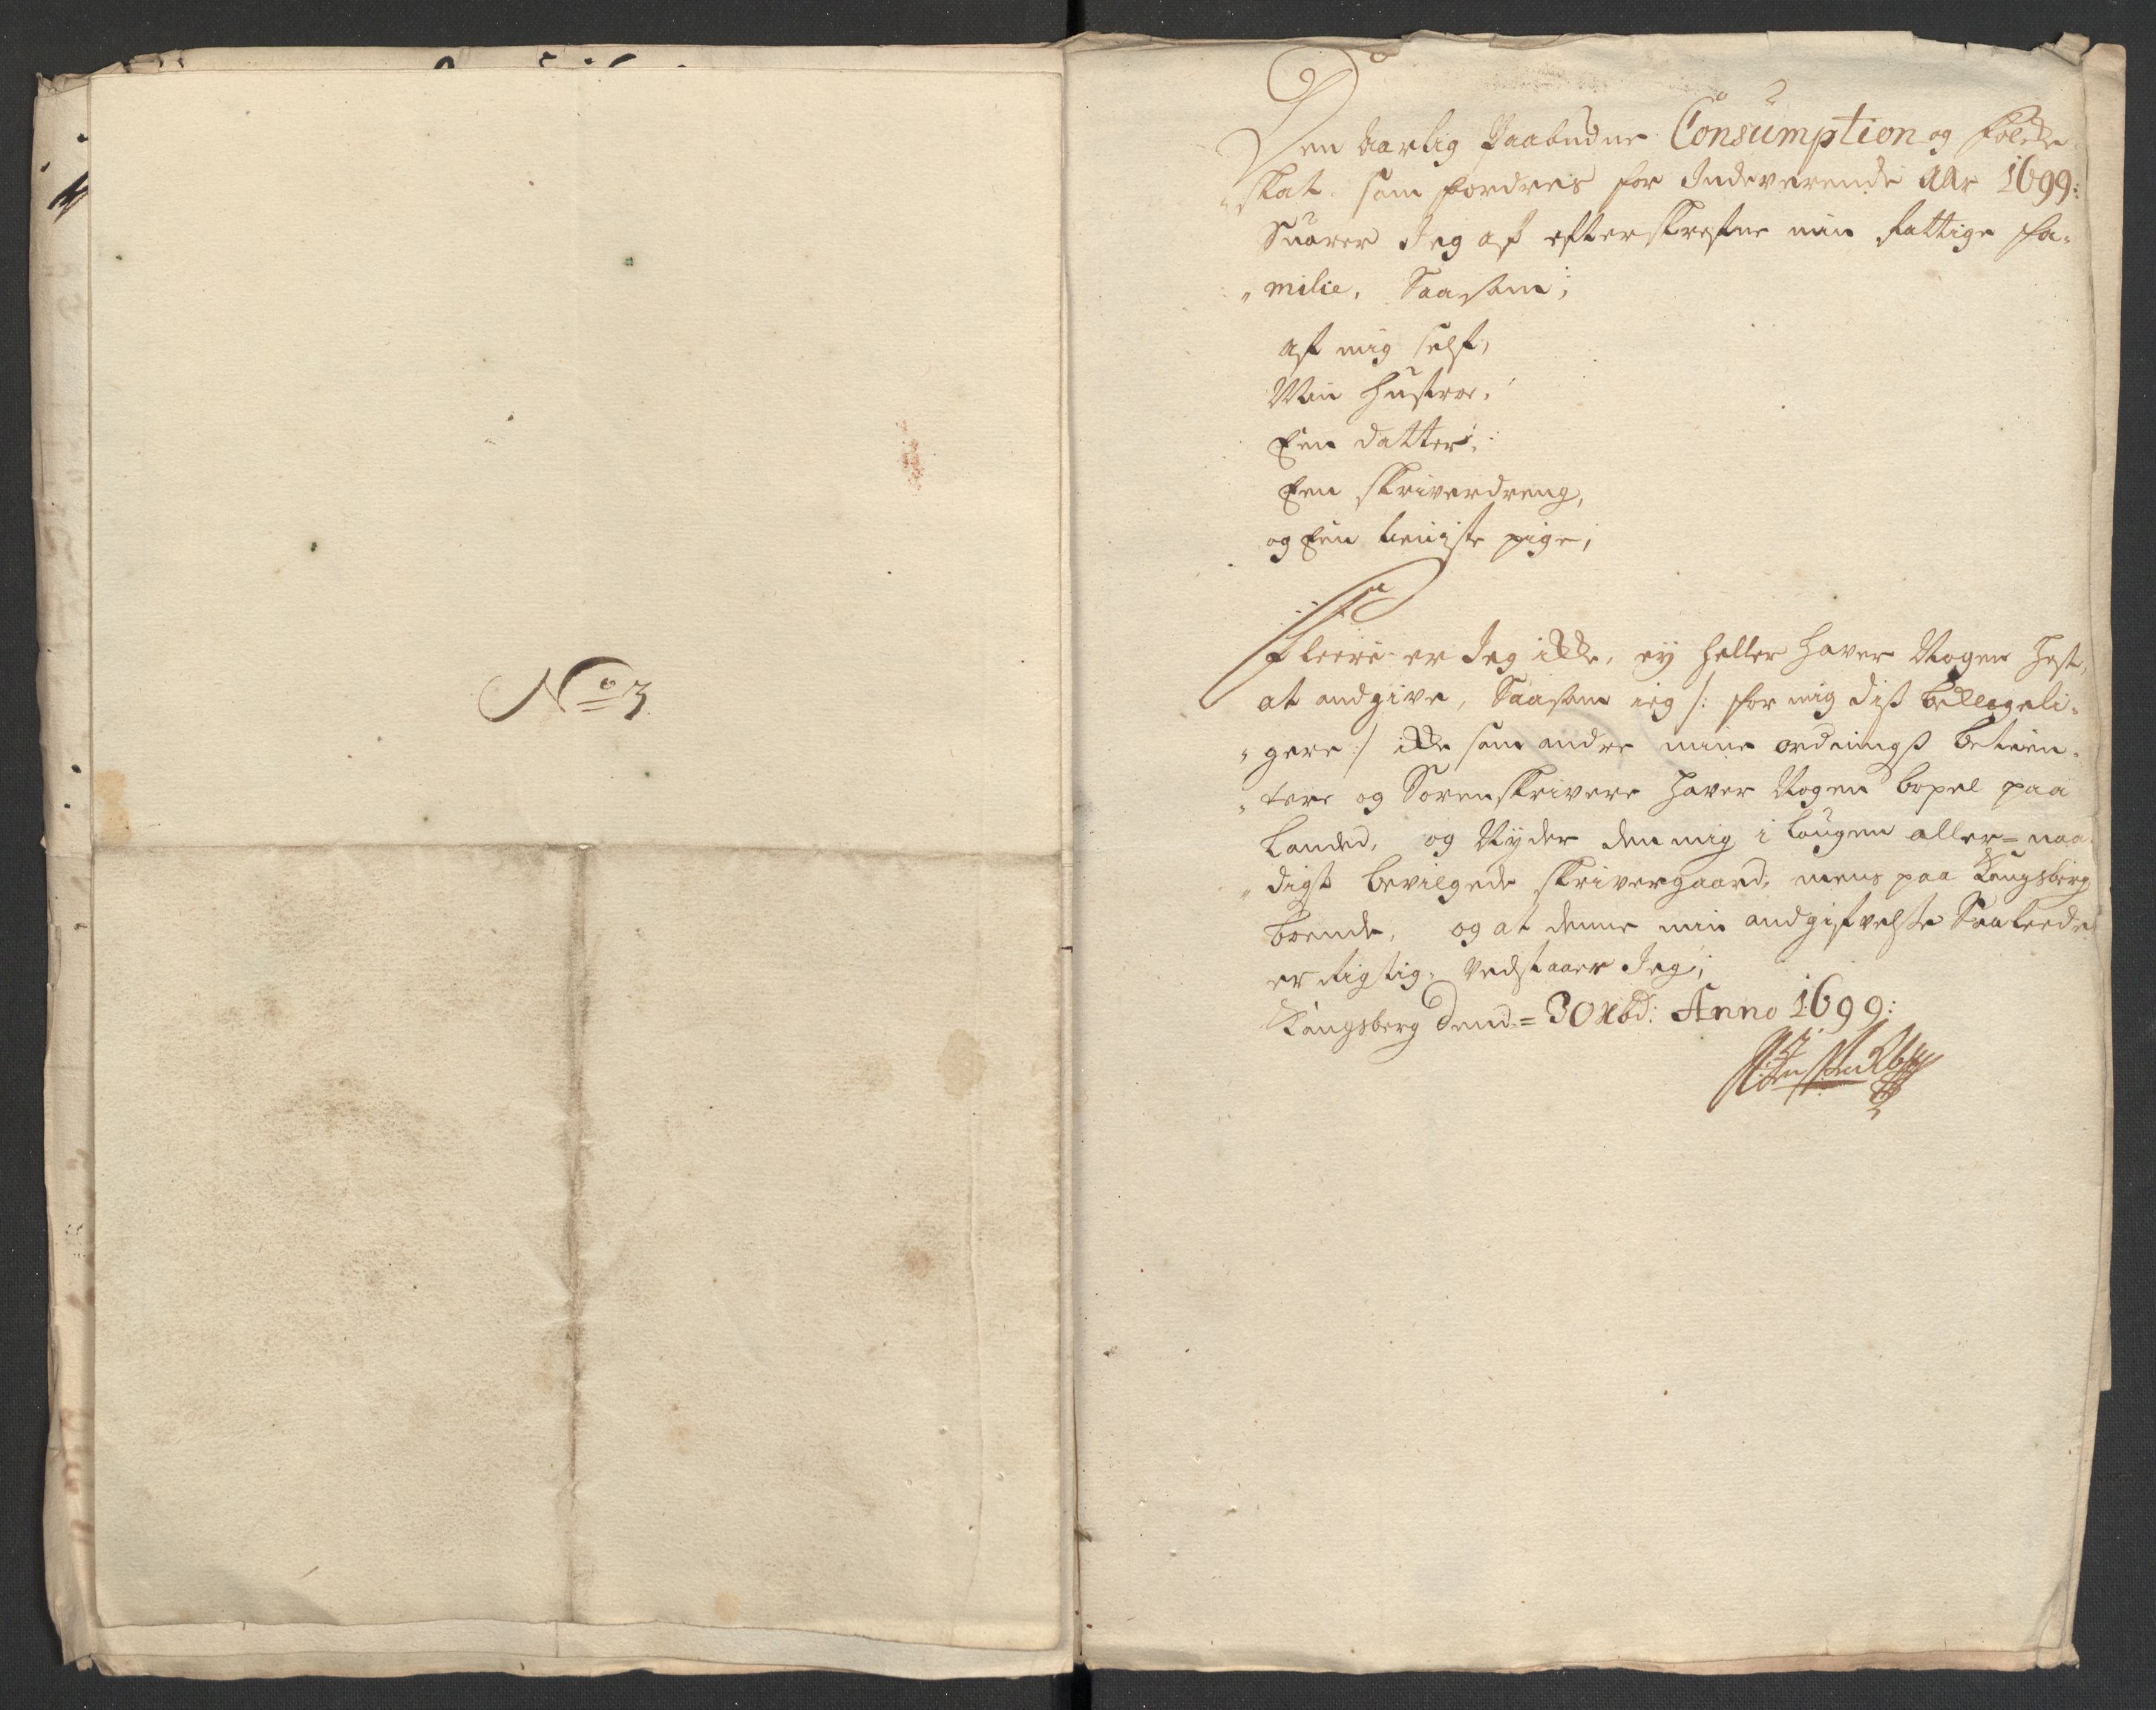 No 3
Den aarlig Paabudne Consumption og Folcke
skat som fordres for Indeværende Aar 1699:
Suarer Jeg af efterskrefne min fattige fa-
milie, Saasom;
Af mig self,
Min Hustroe,
Een datter,
Een skriverdreng,
og Een tieniste pige;
Fleere er Jeg icke, ey heller haver Nogen Hest,
at andgive, Saasom ieg /: for mig dis beklageli-
gere :/ icke som andre mine ordnings betien-
tere og Sorenskrivere haver Nogen bopæl paa
Landed, og Nyder den mig i Laugen aller=naa-
digst bevilgede skrivergaard, mens paa Kongsberg
boende, og at denne min andgifvelse Saaleedes
er rigtig, Vedstaaer Jeg;
Kongsberg dend= 30 Xbd: Anno 1699: